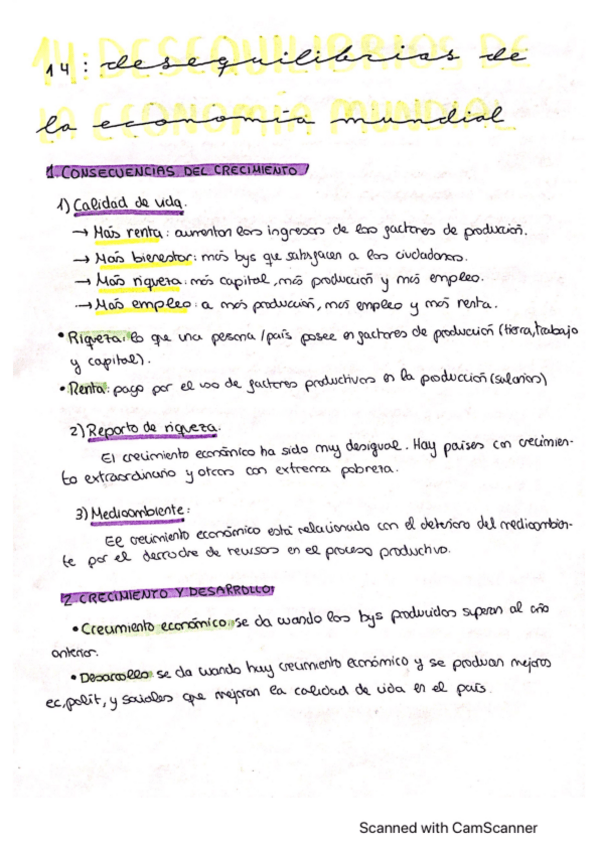 14: desequilibrios de
la economía mundial
1. CONSECUENCIAS DEL CRECIMIENTO
1) Calidad de vida.
→ Más renta: aumentan los ingresos de los factores de producción.
→ Más bienestar: más bys que satisfacen a los ciudadanos.
→ Más riqueza: más capital, más producción y más empleo.
→ Más empleo: a más producción, más empleo y más renta.
• Riqueza: lo que una persona/país posee en factores de producción (tierra, trabajo
y capital).
• Renta: pago por el uso de factores productivos en la producción (salarios)
2) Reparto de riqueza.
El crecimiento económico ha sido muy desigual. Hay países con crecimien-
to extraordinario y otros con extrema pobreza.
3) Medioambiente:
El crecimiento económico está relacionado con el deterioro del medioambien-
te por el derroche de recursos en el proceso productivo.
2. CRECIMIENTO Y DESARROLLO
• Crecimiento económico: se da cuando los bys producidos superan al año
anterior.
• Desarrollo: se da cuando hay crecimiento económico y se producen mejoras
ec, polít, y sociales que mejoran la calidad de vida en el país.
Scanned with CamScanner